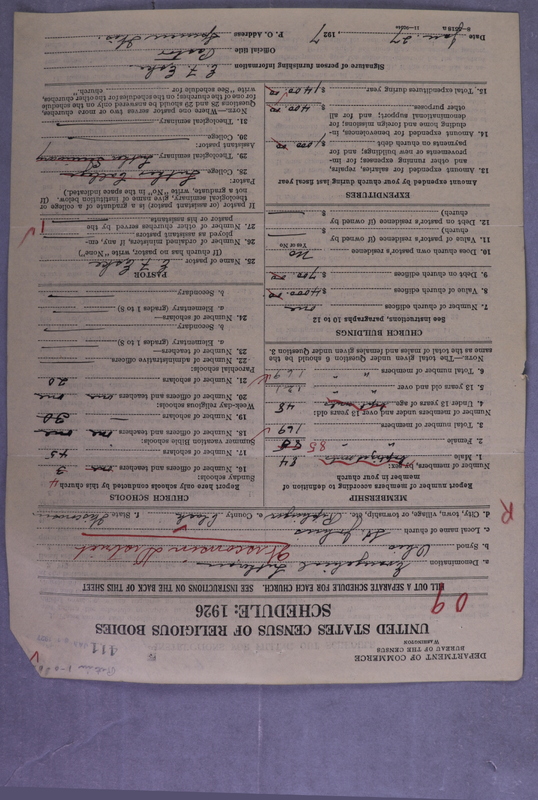 DEPARTMENT OF COMMERCE
BUREAU OF THE CENSUS
WASHINGTON
411
UNITED STATES CENSUS OF RELIGIOUS BODIES
SCHEDULE: 1926
09
FILL OUT A SEPARATE SCHEDULE FOR EACH CHURCH. SEE INSTRUCTIONS ON THE BACK OF THIS SHEET
a. Denomination Evangelical Lutheran
b. Synod Ohio Wisconsin District
c. Local name of church St. Johns
d. City, town, village, or township, etc. e. County Clark f. State Wisconsin
R
MEMBERSHIP
Report number of members according to definition of
member in your church
Number of members, by sex:
1. Male 84
2. Female 85
3. Total number of members 169
Number of members under and over 13 years old:
4. Under 13 years of age 48
5. 13 years old and over 121
6. Total number of members 169
NOTE.—The total given under Question 6 should be the
same as the total of males and females given under Question 3.
CHURCH BUILDINGS
See instructions, paragraphs 10 to 12
7. Number of church edifices one
8. Value of church edifices $ 4000.00
9. Debt on church edifices $ 700.00
10. Does church own pastor's residence no
Yes or No
11. Value of pastor's residence (if owned by
church) $
12. Debt on pastor's residence (if owned by
church) $
EXPENDITURES
Amount expended by your church during last fiscal year
13. Amount expended for salaries, repairs,
and other running expenses; for im-
provements or new buildings; and for
payments on church debt $ 1000.00
14. Amount expended for benevolences, in-
cluding home and foreign missions; for
denominational support; and for all
other purposes $ 400.00
15. Total expenditures during year $ 1400.00
CHURCH SCHOOLS
Report here only schools conducted by this church
Sunday schools:
16. Number of officers and teachers 3
17. Number of scholars 45
Summer vacation Bible schools:
18. Number of officers and teachers one
19. Number of scholars 30
Week-day religious schools:
20. Number of officers and teachers one
21. Number of scholars 20
Parochial schools:
22. Number of administrative officers
23. Number of teachers—
a. Elementary (grades 1 to 8)
b. Secondary
24. Number of scholars—
a. Elementary (grades 1 to 8)
b. Secondary
PASTOR
25. Name of pastor
(If church has no pastor, write "None")
26. Number of ordained ministers, if any, em-
ployed as assistant pastors
27. Number of other churches served by the
pastor or his assistants
If pastor (or assistant pastor) is a graduate of a college or
theological seminary, give name of institution below. (If
not a graduate, write "No" in the space indicated.)
Pastor:
28. College
29. Theological seminary
Assistant pastor:
30. College
31. Theological seminary
NOTE.—Where one pastor serves two or more churches,
Questions 28 and 29 should be answered only on the schedule
for one of the churches; on the schedules for the other churches,
write "See schedule for church."
Signature of person furnishing information
Official title Pastor
P. O. Address Spencer Wis.
Date Jan. 27, 1927